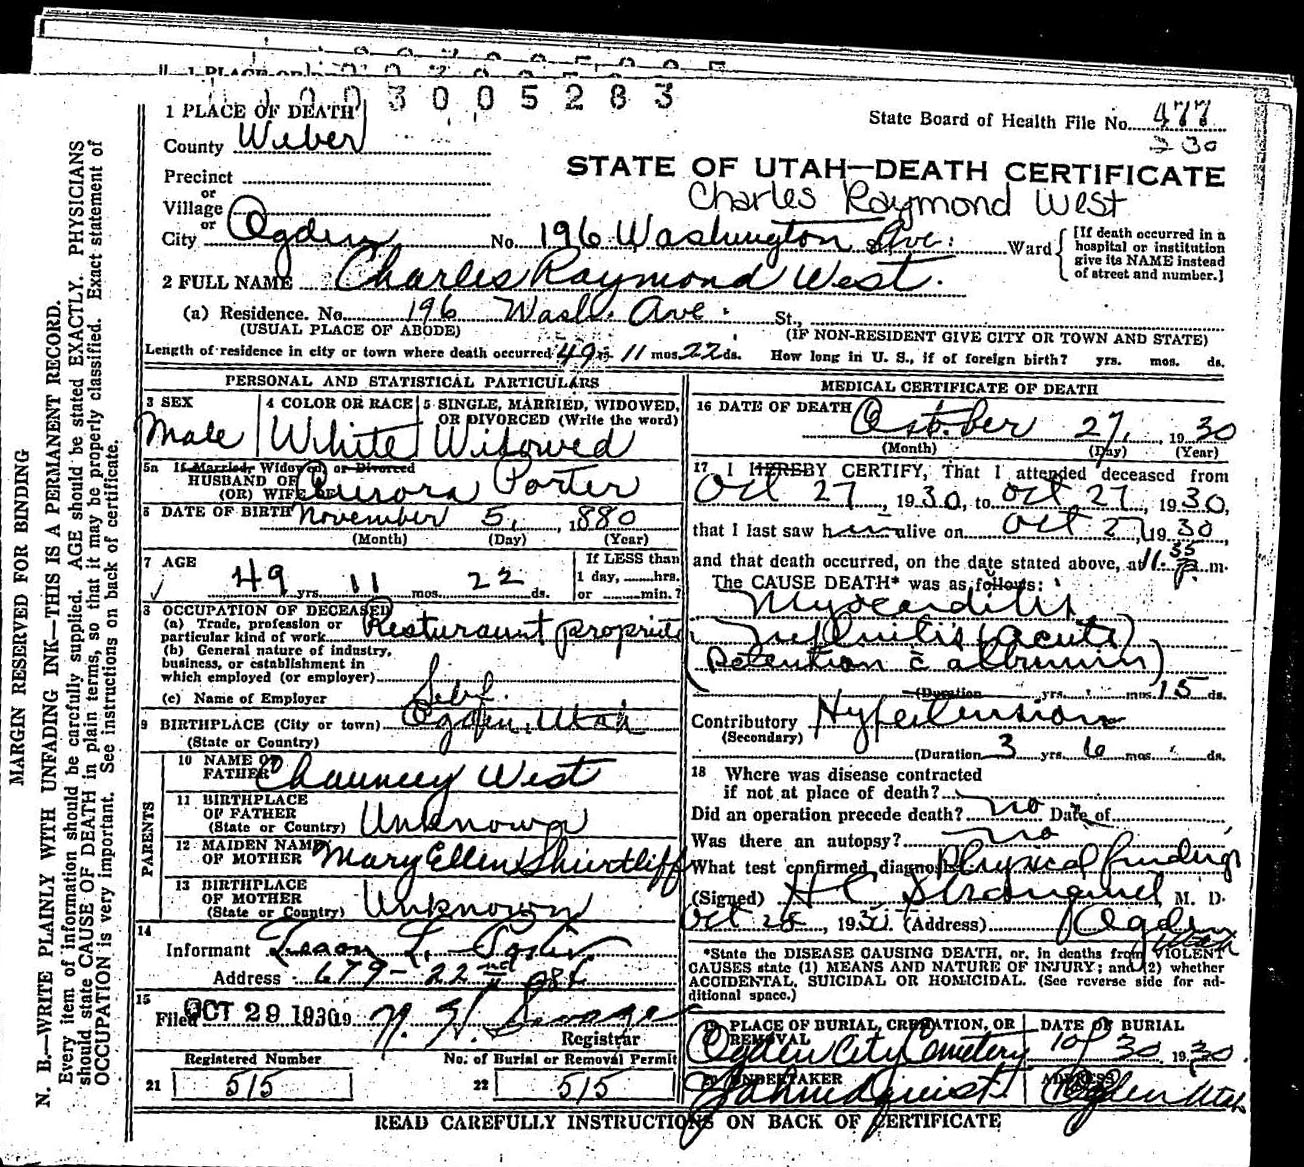 1003005283
1 PLACE OF DEATH
State Board of Health File No. 477
330
County Weber
STATE OF UTAH—DEATH CERTIFICATE
Precinct
Charles Raymond West
or
Village
or
City Ogden No. 196 Washington Ave. Ward [If death occurred in a hospital or institution give its NAME instead of street and number.]
2 FULL NAME Charles Raymond West.
(a) Residence. No. 196 Wash. Ave. St.,
(USUAL PLACE OF ABODE) (IF NON-RESIDENT GIVE CITY OR TOWN AND STATE)
Length of residence in city or town where death occurred 49 yrs. 11 mos. 22 ds. How long in U. S., if of foreign birth? yrs. mos. ds.
PERSONAL AND STATISTICAL PARTICULARS
3 SEX Male
4 COLOR OR RACE White
5 SINGLE, MARRIED, WIDOWED, OR DIVORCED (Write the word) Widowed
5a If Married, Widowed or Divorced
HUSBAND OF
(OR) WIFE OF Aurora Porter
6 DATE OF BIRTH November 5, 1880
(Month) (Day) (Year)
7 AGE 49 yrs. 11 mos. 22 ds.
If LESS than
1 day, hrs.
or min.?
8 OCCUPATION OF DECEASED
(a) Trade, profession or
particular kind of work Resturaunt proprietor
(b) General nature of industry,
business, or establishment in
which employed (or employer)
(c) Name of Employer Self
9 BIRTHPLACE (City or town) Ogden, Utah
(State or Country)
PARENTS
10 NAME OF FATHER Chauncey West
11 BIRTHPLACE OF FATHER (State or Country) Unknown
12 MAIDEN NAME OF MOTHER Mary Ellen Shurtliff
13 BIRTHPLACE OF MOTHER (State or Country) Unknown
14
Informant L.
Address 679-22nd St
15
Filed OCT 29 1930 19
Registrar
Registered Number No. of Burial or Removal Permit
21 515 22 515
MEDICAL CERTIFICATE OF DEATH
16 DATE OF DEATH October 27, 1930
(Month) (Day) (Year)
17 I HEREBY CERTIFY, That I attended deceased from
Oct 27, 1930, to Oct 27, 1930,
that I last saw him alive on Oct 27, 1930,
and that death occurred, on the date stated above, at 11.35 P. m.
The CAUSE DEATH* was as follows:
Myocarditis
Nephritis (acute)
(Retention c̄ albumin)
(Duration yrs. mos. 15 ds.
Contributory Hypertension
(Secondary)
(Duration 3 yrs. 6 mos. ds.
18 Where was disease contracted
if not at place of death?
Did an operation precede death? no Date of
Was there an autopsy? no
What test confirmed diagnosis Physical findings
(Signed) H C M. D.
Oct 28, 1930. (Address) Ogden Utah
*State the DISEASE CAUSING DEATH, or, in deaths from VIOLENT
CAUSES state (1) MEANS AND NATURE OF INJURY; and (2) whether
ACCIDENTAL, SUICIDAL OR HOMICIDAL. (See reverse side for ad-
ditional space.)
PLACE OF BURIAL, CREMATION, OR REMOVAL Ogden City Cemetery
DATE OF BURIAL 10/30 1930
UNDERTAKER
ADDRESS Ogden Utah
READ CAREFULLY INSTRUCTIONS ON BACK OF CERTIFICATE
MARGIN RESERVED FOR BINDING
N. B.—WRITE PLAINLY WITH UNFADING INK—THIS IS A PERMANENT RECORD.
Every item of information should be carefully supplied. AGE should be stated EXACTLY. PHYSICIANS
should state CAUSE OF DEATH in plain terms, so that it may be properly classified. Exact statement of
OCCUPATION is very important. See instructions on back of certificate.